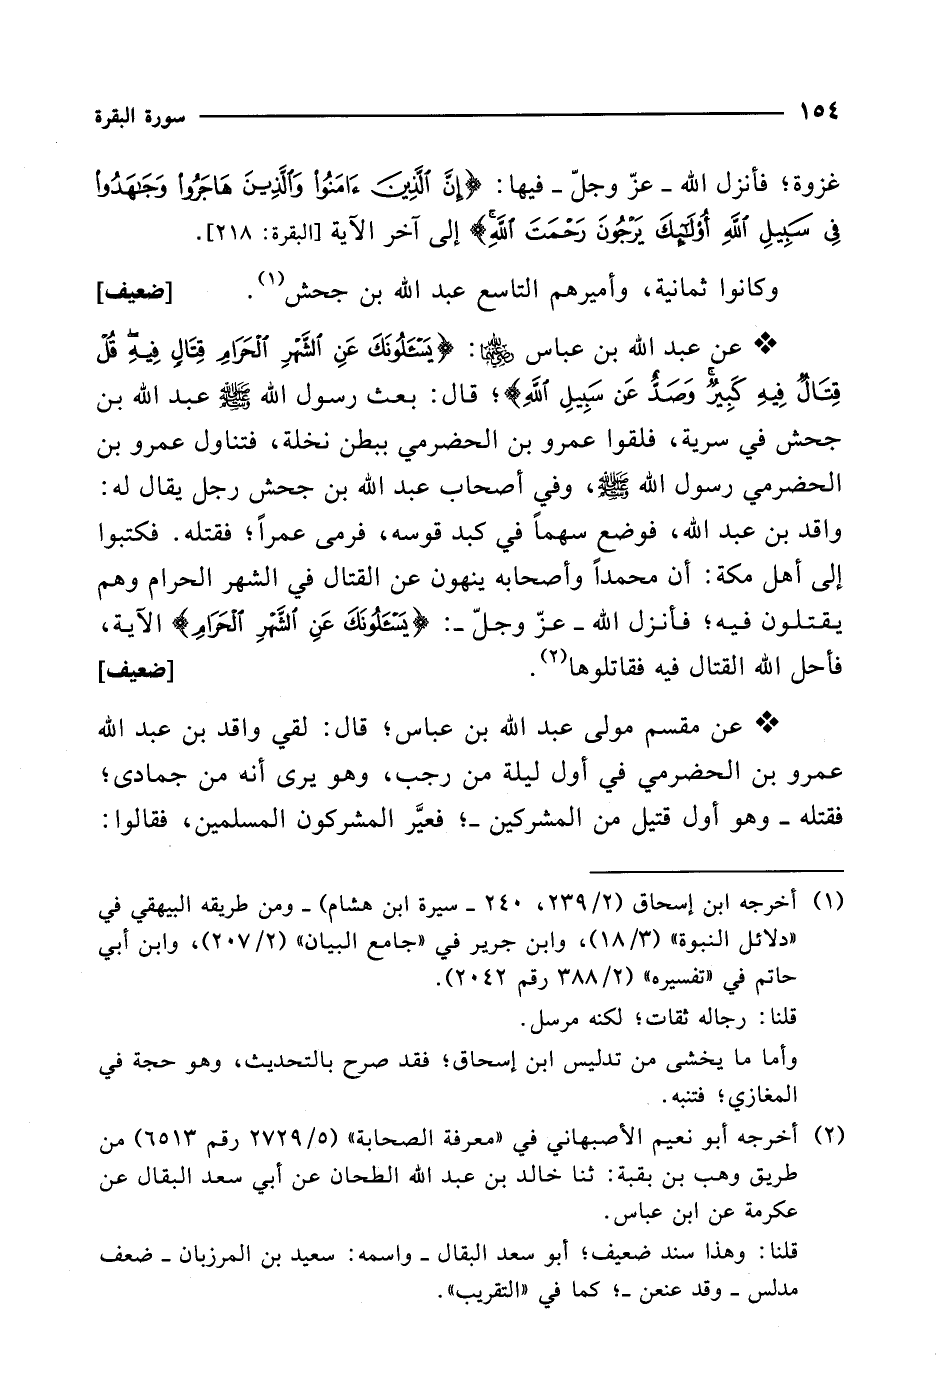 ١٥٤ سورة البقرة
غزوة؛ فأنزل الله ـ عزّ وجلّ ـ فيها: ﴿إِنَّ ٱلَّذِينَ ءَامَنُوا۟ وَٱلَّذِينَ هَاجَرُوا۟ وَجَـٰهَدُوا۟
فِى سَبِيلِ ٱللَّهِ أُو۟لَـٰٓئِكَ يَرْجُونَ رَحْمَتَ ٱللَّهِۚ﴾ إلى آخر الآية [البقرة: ٢١٨].
وكانوا ثمانية، وأميرهم التاسع عبد الله بن جحش(١). [ضعيف]
❖ عن عبد الله بن عباس رضي الله عنهما: ﴿يَسْـَٔلُونَكَ عَنِ ٱلشَّهْرِ ٱلْحَرَامِ قِتَالٍ فِيهِۖ قُلْ
قِتَالٌ فِيهِ كَبِيرٌۚ وَصَدٌّ عَن سَبِيلِ ٱللَّهِ﴾؛ قال: بعث رسول الله ﷺ عبد الله بن
جحش في سرية، فلقوا عمرو بن الحضرمي ببطن نخلة، فتناول عمرو بن
الحضرمي رسول الله ﷺ، وفي أصحاب عبد الله بن جحش رجل يقال له:
واقد بن عبد الله، فوضع سهماً في كبد قوسه، فرمى عمراً؛ فقتله. فكتبوا
إلى أهل مكة: أن محمداً وأصحابه ينهون عن القتال في الشهر الحرام وهم
يقتلون فيه؛ فأنزل الله ـ عزّ وجلّ ـ: ﴿يَسْـَٔلُونَكَ عَنِ ٱلشَّهْرِ ٱلْحَرَامِ﴾ الآية،
فأحل الله القتال فيه فقاتلوها(٢). [ضعيف]
❖ عن مقسم مولى عبد الله بن عباس؛ قال: لقي واقد بن عبد الله
عمرو بن الحضرمي في أول ليلة من رجب، وهو يرى أنه من جمادى؛
فقتله ـ وهو أول قتيل من المشركين ـ؛ فعيَّر المشركون المسلمين، فقالوا:
(١) أخرجه ابن إسحاق (٢/٢٣٩، ٢٤٠ ـ سيرة ابن هشام) ـ ومن طريقه البيهقي في
«دلائل النبوة» (٣/١٨)، وابن جرير في «جامع البيان» (٢/٢٠٧)، وابن أبي
حاتم في «تفسيره» (٢/٣٨٨ رقم ٢٠٤٢).
قلنا: رجاله ثقات؛ لكنه مرسل.
وأما ما يخشى من تدليس ابن إسحاق؛ فقد صرح بالتحديث، وهو حجة في
المغازي؛ فتنبه.
(٢) أخرجه أبو نعيم الأصبهاني في «معرفة الصحابة» (٥/٢٧٢٩ رقم ٦٥١٣) من
طريق وهب بن بقية: ثنا خالد بن عبد الله الطحان عن أبي سعد البقال عن
عكرمة عن ابن عباس.
قلنا: وهذا سند ضعيف؛ أبو سعد البقال ـ واسمه: سعيد بن المرزبان ـ ضعف
مدلس ـ وقد عنعن ـ؛ كما في «التقريب».